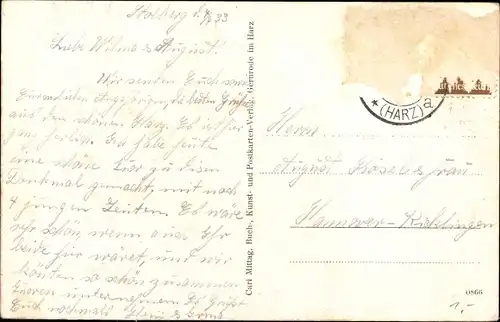 Stolberg 33
Liebe Wilma & August!
Wir senden Euch von
Angehörigen, die besten Grüße
aus dem schönen Harz. Es ist hier
ganz herrlich. Ich habe heute
eine schöne Tour zu diesem
Denkmal gemacht, mit noch
4 jungen Leuten. Es wäre
sehr schön, wenn auch Ihr
beide hier wäret, und wir
könnten so schön zusammen
Touren unternehmen. Es grüßt
Euch nochmals
Carl Mittag, Buch-, Kunst- und Postkarten-Verlag, Gernrode im Harz
* (HARZ) a
Herrn
August & Frau
Hannover-Ricklingen
0866
1,-